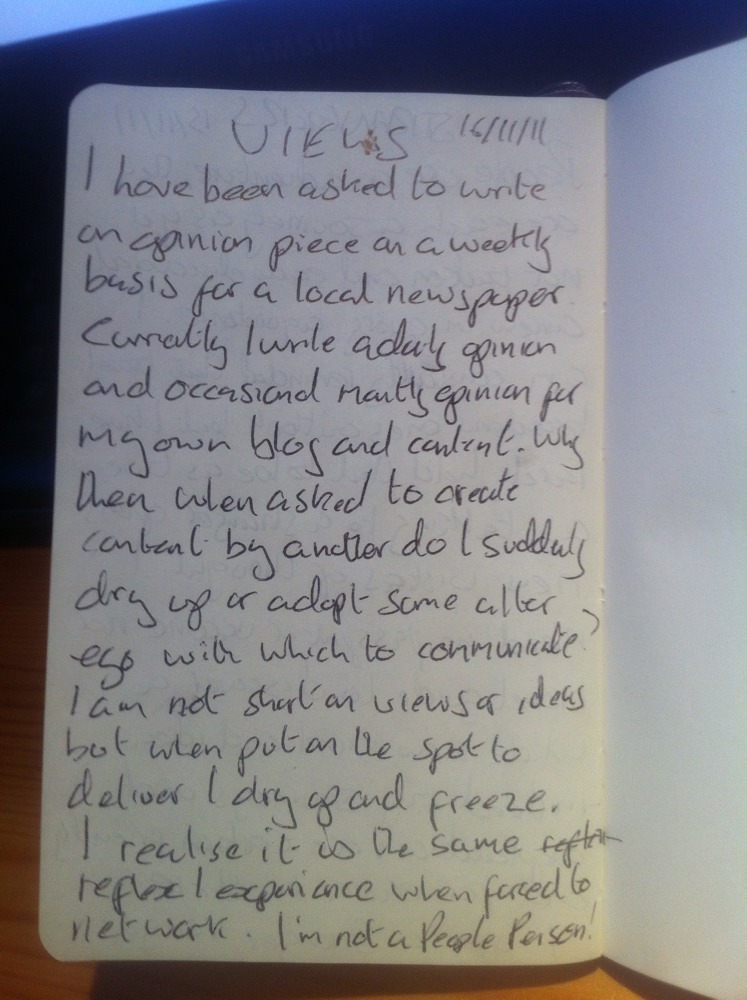 VIEWS 16/11/11
I have been asked to write
an opinion piece on a weekly
basis for a local newspaper.
Currently I write a daily opinion
and occasional monthly opinion for
my own blog and content. Why
then when asked to create
content by another do I suddenly
dry up or adopt some alter
ego with which to communicate?
I am not short on views or ideas
but when put on the spot to
deliver I dry up and freeze.
I realise it is the same
reflex I experience when forced to
network. I'm not a People Person!